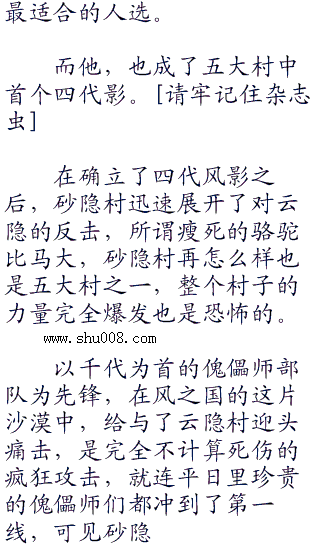 最适合的人选。
而他，也成了五大村中
首个四代影。[请牢记住杂志
虫]
在确立了四代风影之
后，砂隐村迅速展开了对云
隐的反击，所谓瘦死的骆驼
比马大，砂隐村再怎么样也
是五大村之一，整个村子的
力量完全爆发也是恐怖的。
www.shu008.com
以千代为首的傀儡师部
队为先锋，在风之国的这片
沙漠中，给与了云隐村迎头
痛击，是完全不计算死伤的
疯狂攻击，就连平日里珍贵
的傀儡师们都冲到了第一
线，可见砂隐